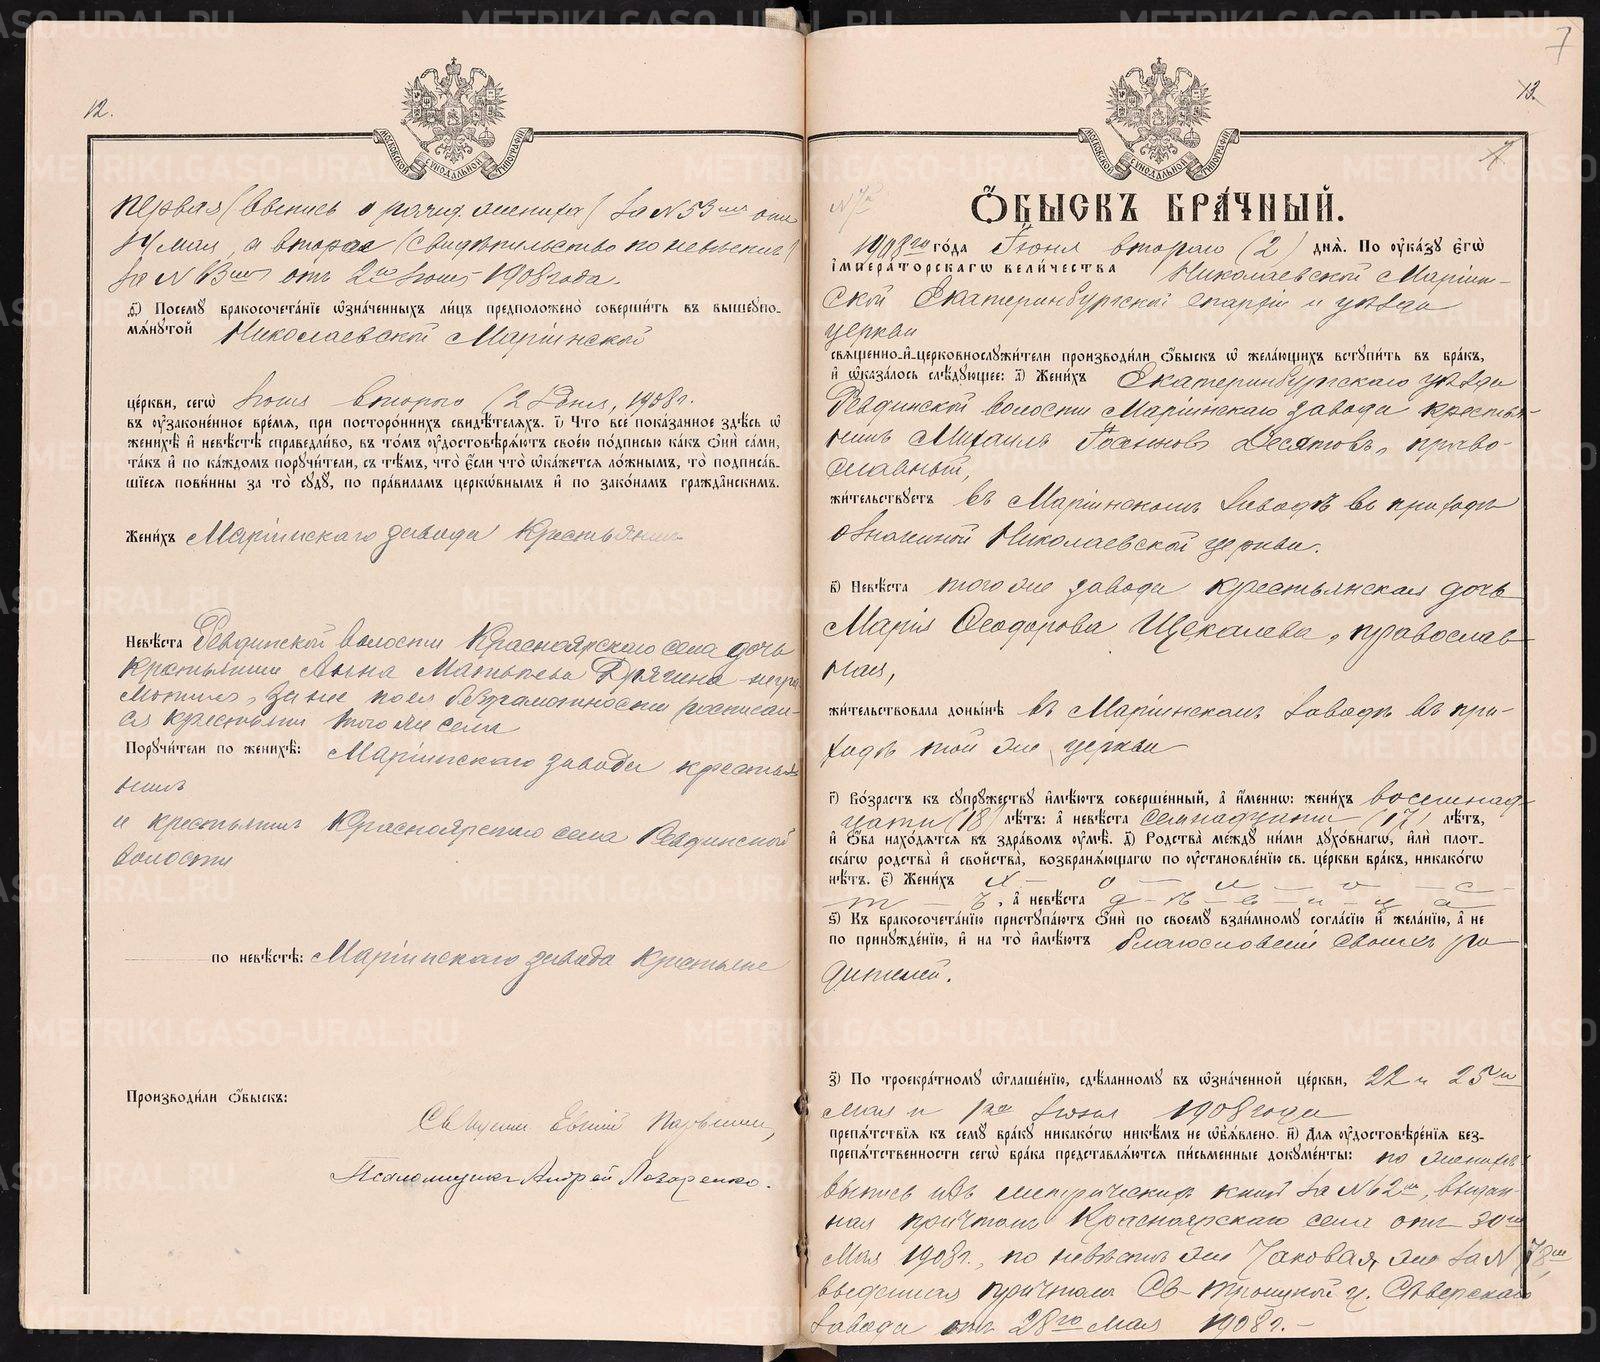 12.
первая (выпись о рожд. жениха) за № 53 отъ
14 мая, а вторая (свидѣтельство по невѣстѣ)
за № 63 отъ 2го Іюня 1908 года.
д҃і) Посемꙋ бракосочетанїе ѡзначенныхъ лицъ предположено совершить въ вышеупо-
мянутой Николаевской Маріинской
церкви, сегѡ Іюня второго (2 Іюня, 1908г.
въ ꙋзаконенное время, при постороннихъ свидѣтеляхъ. і҃) Что все показанное здѣсь ѡ
женихѣ и невѣстѣ справедливо, въ томъ ꙋдостовѣряютъ своею подписью какъ ѻни сами,
такъ и по каждомъ поручители, съ тѣмъ, что єсли что ѡкажется ложнымъ, то подписав-
шїеся повинны за то сꙋдꙋ, по правиламъ церкѡвнымъ и по законамъ гражданскимъ.
Женихъ Маріинскаго завода Крестьянинъ
Невѣста Ревдинской волости Красноярскаго села дочь
крестьянина Анна Матвѣева Дрягина негра-
мотная, за нее по ея безграмотности росписал-
ся крестьянин того же села
Порꙋчители по женихѣ: Маріинскаго завода крестья-
нинъ
и крестьянинъ Красноярскаго села Ревдинской
волости
по невѣстѣ: Маріинскаго завода крестьяне
Производили ѻбыскъ:
Священ. Евгеній
Псаломщикъ Андрей Лазаренко.
МОСКОВСКОЙ СѴНОДАЛЬНОЙ ТИПОГРАФІИ
7
13.
МОСКОВСКОЙ СѴНОДАЛЬНОЙ ТИПОГРАФІИ
7
№ 7
ѺБЫСКЪ БРАЧНЫЙ.
1908го года Іюня второго (2) дня. По ꙋказꙋ єгѡ
императорскагѡ величества Николаевской Маріин-
ской Екатеринбургской епархіи и уѣзда
церкви
священно-и-церковнослужители производили ѻбыскъ ѡ желающихъ вступить въ бракъ,
и ѡказалось слѣдующее: а҃) Женихъ Екатеринбургскаго уѣзда
Ревдинской волости Маріинскаго завода крестья-
нинъ Михаилъ Іоанновъ Десятовъ, право-
славный,
жительствуетъ въ Маріинскомъ заводѣ въ приходѣ
означенной Николаевской церкви.
в҃) Невѣста того же завода крестьянская дочь
Марія Ѳеодорова Щекалева, православ-
ная,
жительствовала донынѣ въ Маріинскомъ заводѣ въ при-
ходѣ той же церкви
г҃) Возрастъ къ сꙋпрꙋжествꙋ имѣютъ совершенный, а именнѡ: женихъ восемнад-
цати (18) лѣтъ: а невѣста семнадцати (17) лѣтъ,
и ѻба находятся въ здравомъ ꙋмѣ. д҃) Родства между ними дꙋховнагѡ, или плот-
скагѡ родства и свойства, возбраняющагѡ по ꙋстановленїю св. церкви бракъ, никакогѡ
нѣтъ. є҃) Женихъ х — о — л — о — с —
т — ъ, а невѣста д — ѣ — в — и — ц — а
ѕ҃) Къ бракосочетанїю пристꙋпаютъ ѻни по своемꙋ взаимномꙋ согласїю и желанїю, а не
по принꙋжденїю, и на то имѣютъ благословеніе своихъ ро-
дителей.
з҃) По троекратномꙋ ѡглашенїю, сдѣланномꙋ въ ѡзначенной церкви, 22 и 25го
мая и 1го Іюня 1908 года
препятствїя къ семꙋ бракꙋ никакогѡ никѣмъ не ѡбъявлено. и҃) Для ꙋдостовѣренїя без-
препятственности сегѡ брака представляются письменные докꙋменты: по женихѣ
выпись изъ метрическихъ книгъ за № 62, выдан-
ная причтомъ Красноярскаго села отъ 30го
Мая 1908г., по невѣстѣ же таковая же за № 78,
выданная причтомъ Св-Троицкой ц. Сѣверскаго
завода отъ 28го Мая 1908г. —
METRIKI.GASO-URAL.RU